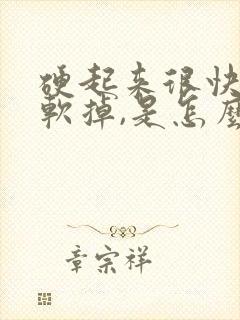 硬起来很快
軟掉,是怎麼
章宗祥